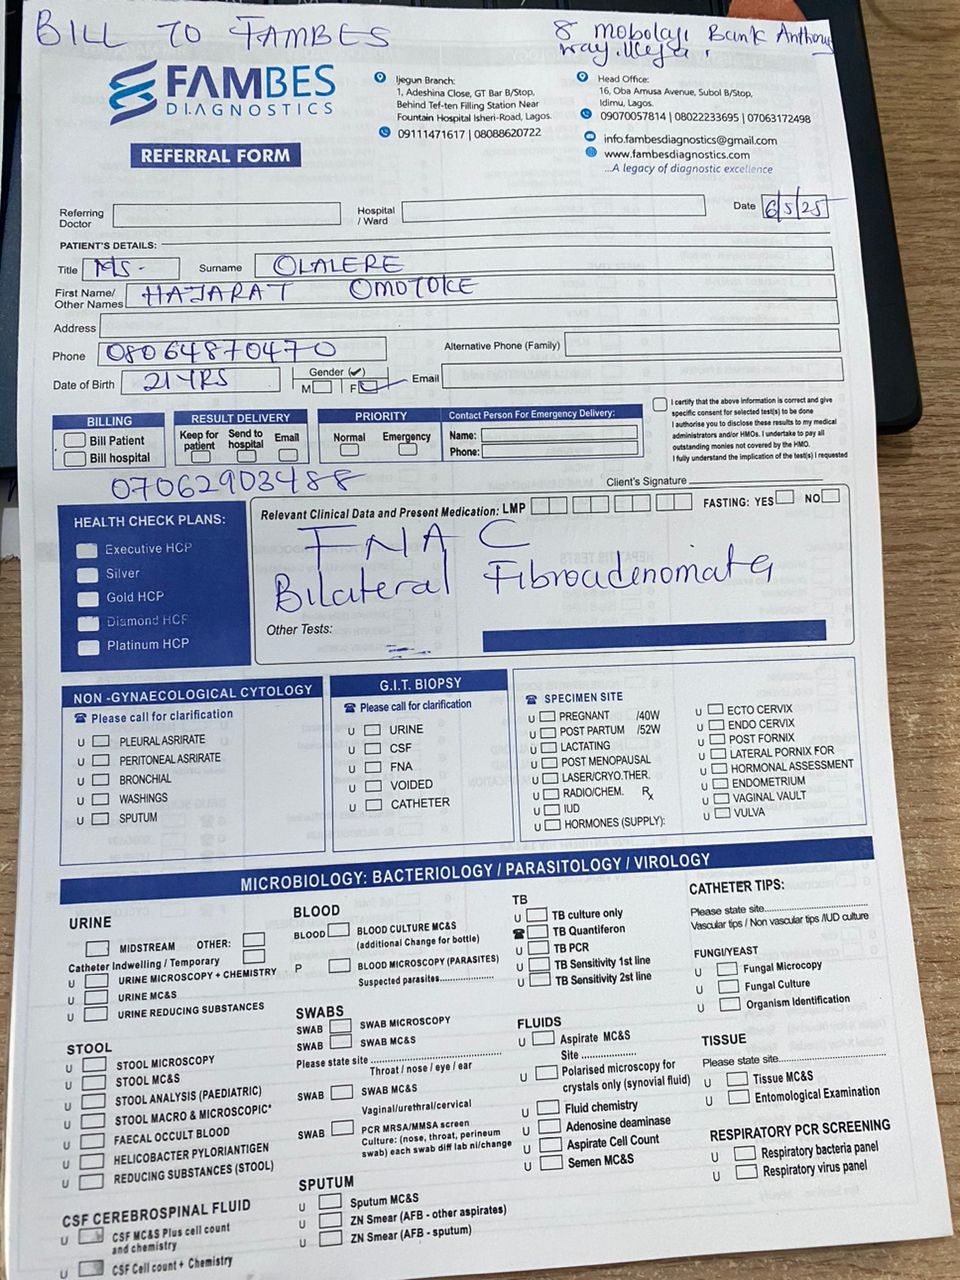 BILL TO FAMBES
8 mobolaji Bank Anthony
way. Ikeja.
FAMBES
DIAGNOSTICS
REFERRAL FORM
Ijegun Branch:
1, Adeshina Close, GT Bar B/Stop,
Behind Tef-ten Filling Station Near
Fountain Hospital Isheri-Road, Lagos.
09111471617 | 08088620722
Head Office:
16, Oba Amusa Avenue, Subol B/Stop,
Idimu, Lagos.
09070057814 | 08022233695 | 07063172498
info.fambesdiagnostics@gmail.com
www.fambesdiagnostics.com
...A legacy of diagnostic excellence
Referring Doctor
Hospital / Ward
Date 6/5/25
PATIENT'S DETAILS:
Title MS. Surname OLALERE
First Name/ Other Names HAJARAT OMOTOKE
Address
Phone 08064870470 Alternative Phone (Family)
Date of Birth 21 YRS Gender (✓) M F Email
BILLING
Bill Patient
Bill hospital
RESULT DELIVERY
Keep for patient Send to hospital Email
PRIORITY
Normal Emergency
Contact Person For Emergency Delivery:
Name:
Phone:
I certify that the above information is correct and give
specific consent for selected test(s) to be done
I authorise you to disclose these results to my medical
administrators and/or HMOs. I undertake to pay all
outstanding monies not covered by the HMO.
I fully understand the implication of the test(s) I requested
07062903488
Client's Signature
HEALTH CHECK PLANS:
Executive HCP
Silver
Gold HCP
Diamond HCP
Platinum HCP
Relevant Clinical Data and Present Medication: LMP FASTING: YES NO
FNAC
Bilateral Fibroadenomata
Other Tests:
NON -GYNAECOLOGICAL CYTOLOGY
Please call for clarification
U PLEURAL ASRIRATE
U PERITONEAL ASRIRATE
U BRONCHIAL
U WASHINGS
U SPUTUM
G.I.T. BIOPSY
Please call for clarification
U URINE
U CSF
U FNA
U VOIDED
U CATHETER
SPECIMEN SITE
U PREGNANT /40W
U POST PARTUM /52W
U LACTATING
U POST MENOPAUSAL
U LASER/CRYO.THER.
U RADIO/CHEM. Rx
U IUD
U HORMONES (SUPPLY):
U ECTO CERVIX
U ENDO CERVIX
U POST FORNIX
U LATERAL PORNIX FOR
U HORMONAL ASSESSMENT
U ENDOMETRIUM
U VAGINAL VAULT
U VULVA
MICROBIOLOGY: BACTERIOLOGY / PARASITOLOGY / VIROLOGY
URINE
MIDSTREAM OTHER:
Catheter Indwelling / Temporary
U URINE MICROSCOPY + CHEMISTRY
U URINE MC&S
U URINE REDUCING SUBSTANCES
STOOL
U STOOL MICROSCOPY
U STOOL MC&S
U STOOL ANALYSIS (PAEDIATRIC)
U STOOL MACRO & MICROSCOPIC*
U FAECAL OCCULT BLOOD
U HELICOBACTER PYLORIANTIGEN
U REDUCING SUBSTANCES (STOOL)
CSF CEREBROSPINAL FLUID
U CSF MC&S Plus cell count
and chemistry
U CSF Cell count + Chemistry
BLOOD
BLOOD BLOOD CULTURE MC&S
(additional Change for bottle)
P BLOOD MICROSCOPY (PARASITES)
Suspected parasites..................
SWABS
SWAB SWAB MICROSCOPY
SWAB SWAB MC&S
Please state site ..............................
Throat / nose / eye / ear
SWAB SWAB MC&S
Vaginal/urethral/cervical
SWAB PCR MRSA/MMSA screen
Culture: (nose, throat, perineum
swab) each swab diff lab nl/change
SPUTUM
U Sputum MC&S
U ZN Smear (AFB - other aspirates)
U ZN Smear (AFB - sputum)
TB
U TB culture only
TB Quantiferon
U TB PCR
U TB Sensitivity 1st line
U TB Sensitivity 2st line
FLUIDS
U Aspirate MC&S
Site ................
U Polarised microscopy for
crystals only (synovial fluid)
U Fluid chemistry
U Adenosine deaminase
U Aspirate Cell Count
U Semen MC&S
CATHETER TIPS:
Please state site..............................
Vascular tips / Non vascular tips /IUD culture
FUNGI/YEAST
U Fungal Microcopy
U Fungal Culture
U Organism Identification
TISSUE
Please state site..............................
U Tissue MC&S
U Entomological Examination
RESPIRATORY PCR SCREENING
U Respiratory bacteria panel
U Respiratory virus panel